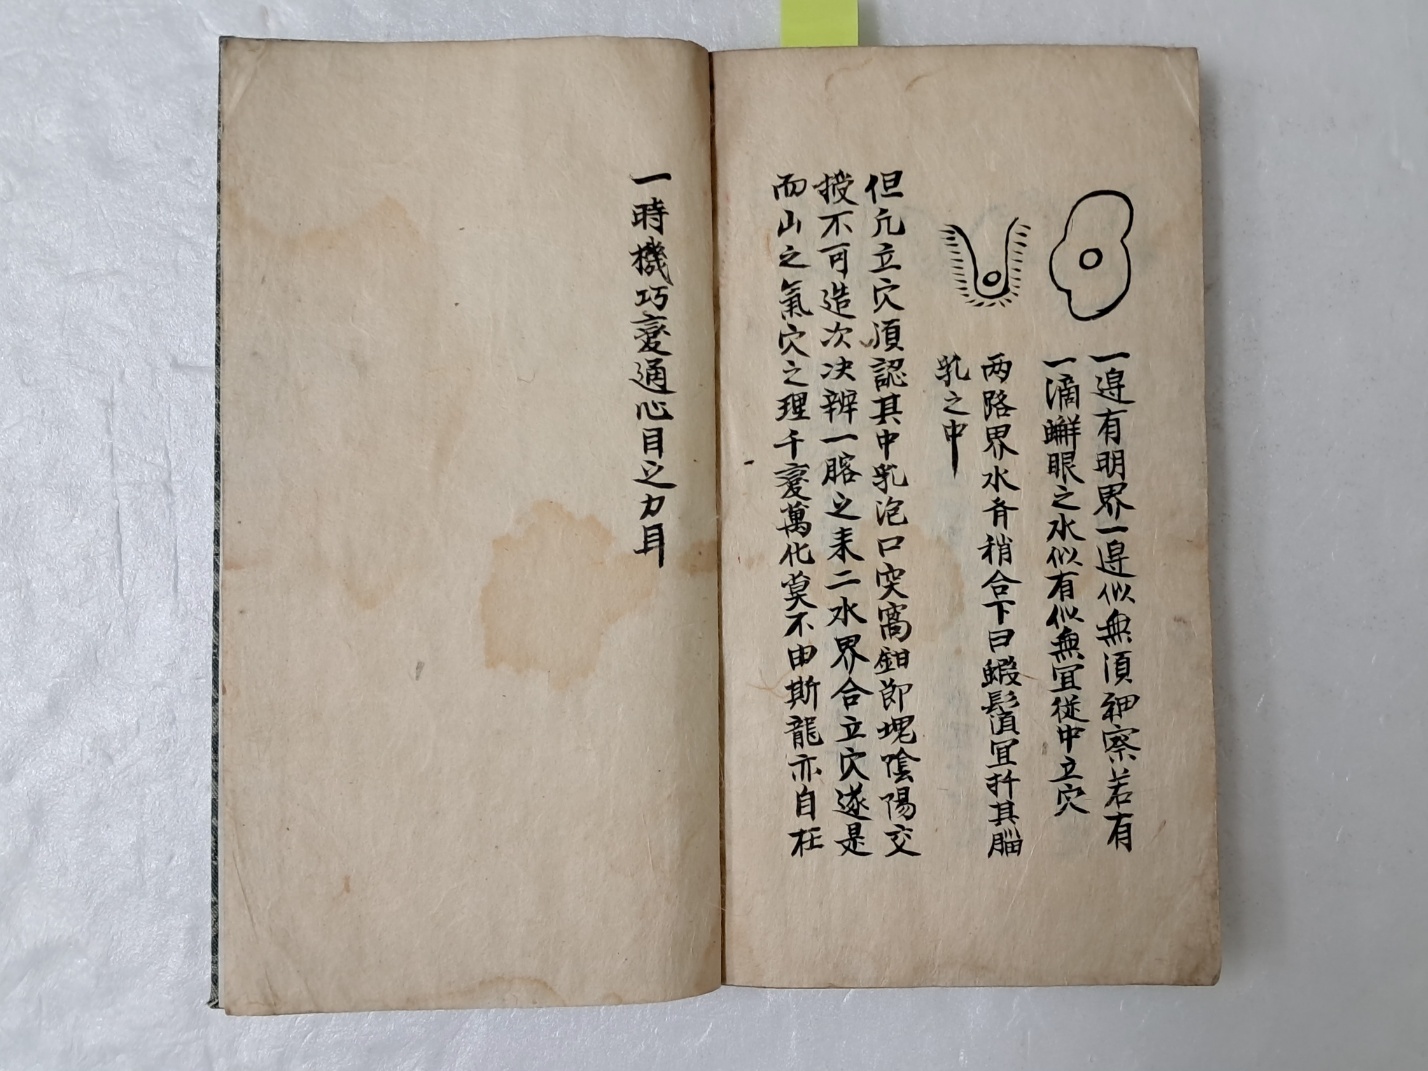 一邉有明界一邉似無須細察若有
一滴蠏眼之水似有似無宜従中立穴
两路界水脊稍合下曰蝦髟須宜扦其腦
乳之中
但凢立穴須認其中乳泡口突窩鉗節塊陰陽交
授不可造次决辨一𦝫之来二水界合立穴遂是
而山之氣穴之理千变萬化莫不由斯龍亦自在
一時機巧变通心目之力耳